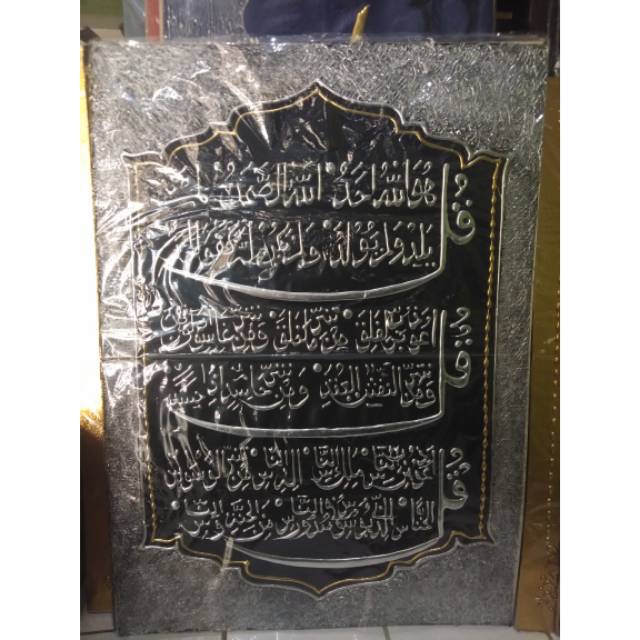 قُلْ هُوَ اللهُ اَحَدٌ اَللهُ الصَّمَدُ لَمْ
يَلِدْ وَلَمْ يُولَدْ وَلَمْ يَكُنْ لَهُ كُفُوًا
قُلْ اَعُوذُ بِرَبِّ الْفَلَقِ مِنْ شَرِّ مَا خَلَقَ وَمِنْ شَرِّ غَاسِقٍ
وَمِنْ شَرِّ النَّفّٰثٰتِ فِي الْعُقَدِ وَمِنْ شَرِّ حَاسِدٍ اِذَا حَسَدَ
قُلْ اَعُوذُ بِرَبِّ النَّاسِ مَلِكِ النَّاسِ اِلٰهِ النَّاسِ مِنْ شَرِّ الْوَسْوَاسِ
الْخَنَّاسِ الَّذِي يُوَسْوِسُ فِي صُدُورِ النَّاسِ مِنَ الْجِنَّةِ وَالنَّاسِ